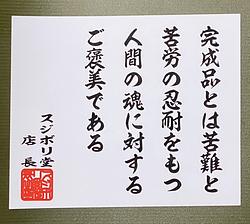 完成品とは苦難と
苦労の忍耐をもつ
人間の魂に対する
ご褒美である
スジボリ堂
店長